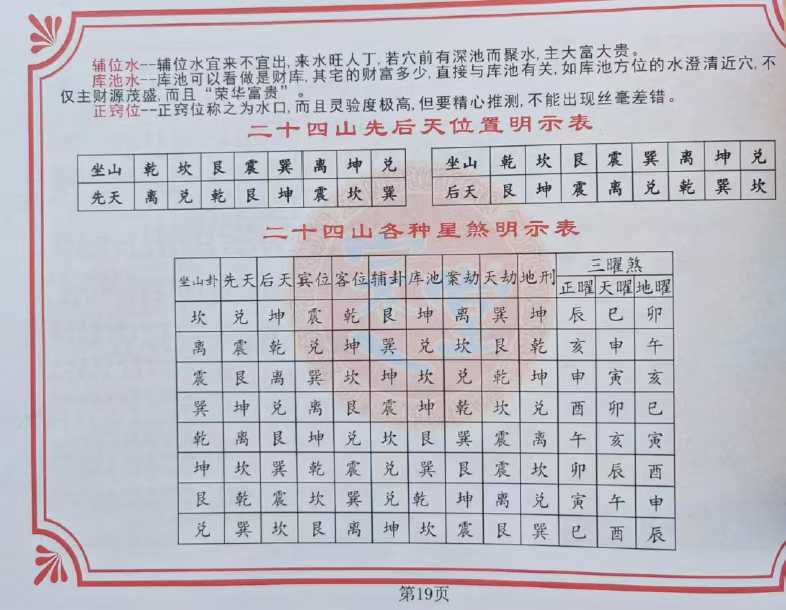 辅位水--辅位水宜来不宜出,来水旺人丁,若穴前有深池而聚水,主大富大贵。
库池水--库池可以看做是财库,其宅的财富多少,直接与库池有关,如库池方位的水澄清近穴,不
仅主财源茂盛,而且“荣华富贵”。
正窍位--正窍位称之为水口,而且灵验度极高,但要精心推测,不能出现丝毫差错。
二十四山先后天位置明示表
坐山 乾 坎 艮 震 巽 离 坤 兑
先天 离 兑 乾 艮 坤 震 坎 巽
坐山 乾 坎 艮 震 巽 离 坤 兑
后天 艮 坤 震 离 兑 乾 巽 坎
二十四山各种星煞明示表
坐山卦 先天 后天 宾位 客位 辅卦 库池 案劫 天劫 地刑 三曜煞
正曜 天曜 地曜
坎 兑 坤 震 乾 艮 坤 离 巽 坤 辰 巳 卯
离 震 乾 兑 坤 巽 兑 坎 艮 乾 亥 申 午
震 艮 离 巽 坎 坤 坎 兑 乾 坤 申 寅 亥
巽 坤 兑 离 艮 震 坤 乾 坎 兑 酉 卯 巳
乾 离 艮 坤 兑 坎 艮 巽 震 离 午 亥 寅
坤 坎 巽 乾 震 兑 巽 艮 震 坎 卯 辰 酉
艮 乾 震 坎 巽 兑 乾 坤 离 兑 寅 午 申
兑 巽 坎 艮 离 坤 坎 震 艮 巽 巳 酉 辰
第19页